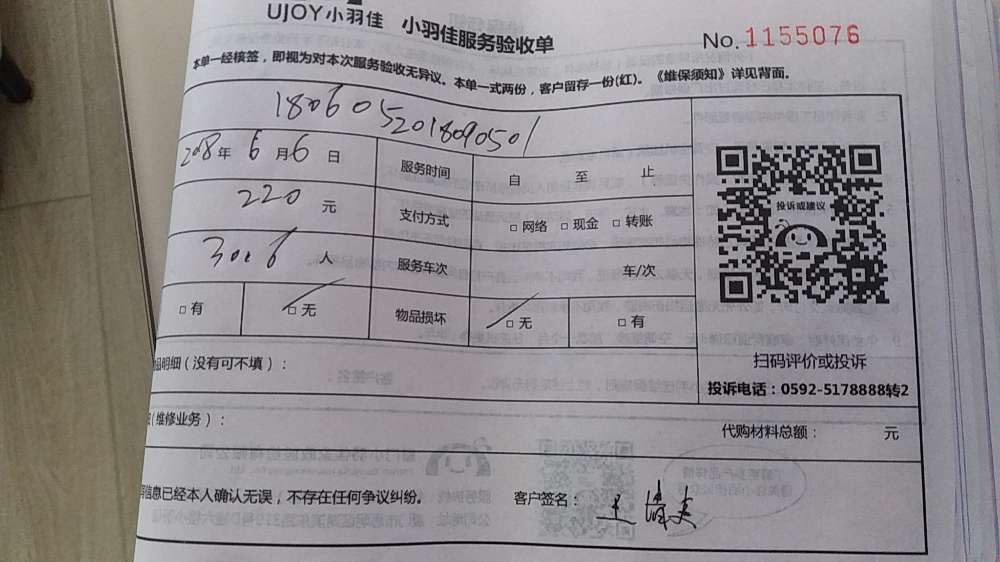 UJOY小羽佳 小羽佳服务验收单
No. 1155076
本单一经核签，即视为对本次服务验收无异议。本单一式两份，客户留存一份(红)。《维保须知》详见背面。
1806052018090501
2018年 6月6日 服务时间 自 至 止
220 元 支付方式 □网络 □现金 □转账
3026 人 服务车次 车/次
□有 □无 物品损坏 □无 □有
投诉或建议
扫码评价或投诉
投诉电话：0592-5178888转2
明细（没有可不填）：
(维修业务）： 代购材料总额： 元
信息已经本人确认无误，不存在任何争议纠纷。 客户签名：